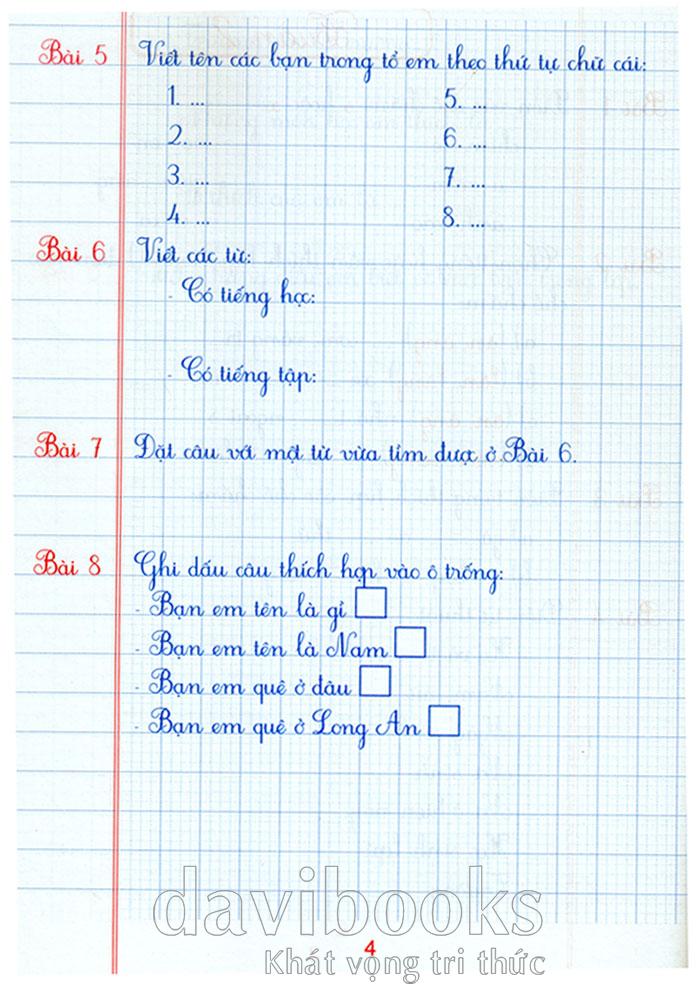 Bài 5 Viết tên các bạn trong tổ em theo thứ tự chữ cái:
1. ... 5. ...
2. ... 6. ...
3. ... 7. ...
4. ... 8. ...
Bài 6 Viết các từ:
- Có tiếng học:
- Có tiếng tập:
Bài 7 Đặt câu với một từ vừa tìm được ở Bài 6.
Bài 8 Ghi dấu câu thích hợp vào ô trống:
- Bạn em tên là gì
- Bạn em tên là Nam
- Bạn em quê ở đâu
- Bạn em quê ở Long An
davibooks
4
Khát vọng tri thức